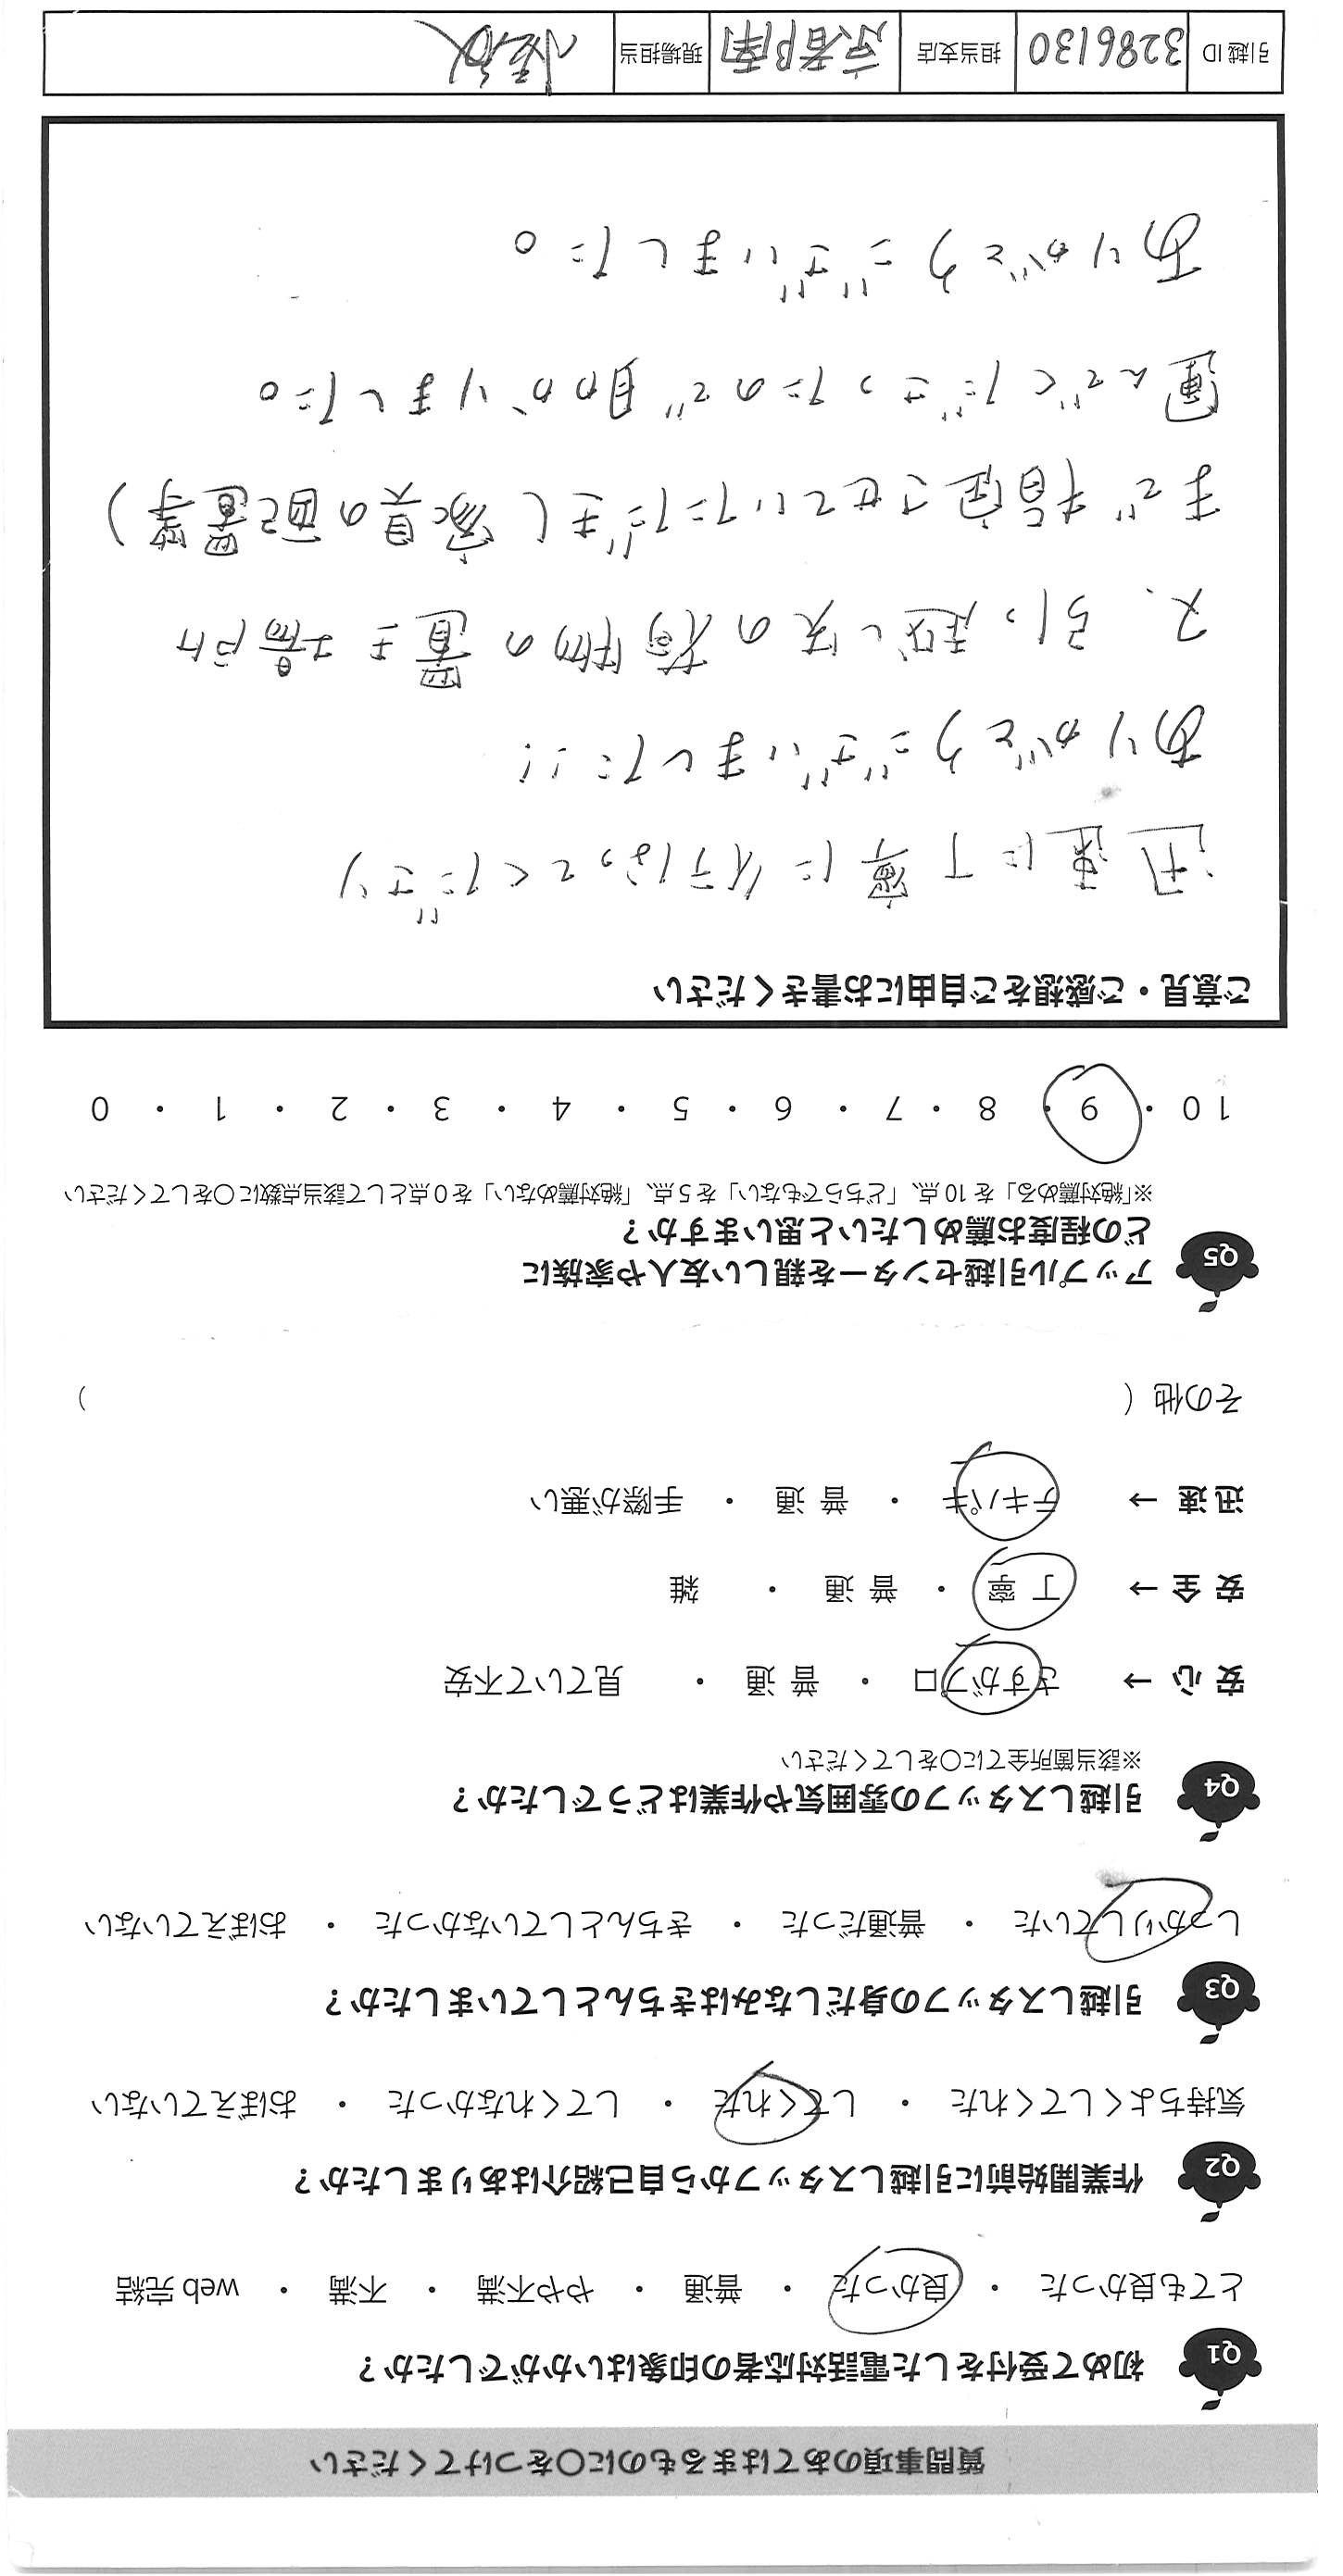 質問事項のあてはまるものに〇をつけてください
Q1 初めて受付をした電話対応者の印象はいかがでしたか？
とても良かった ・ 良かった ・ 普通 ・ やや不満 ・ 不満 ・ web 完結
Q2 作業開始前に引越しスタッフから自己紹介はありましたか？
気持ちよくしてくれた ・ してくれた ・ してくれなかった ・ おぼえていない
Q3 引越しスタッフの身だしなみはきちんとしていましたか？
しっかりしていた ・ 普通だった ・ きちんとしていなかった ・ おぼえていない
Q4 引越しスタッフの雰囲気や作業はどうでしたか？
※該当箇所全てに〇をしてください
安心 → さすがプロ ・ 普通 ・ 見ていて不安
安全 → 丁寧 ・ 普通 ・ 雑
迅速 → テキパキ ・ 普通 ・ 手際が悪い
その他（ ）
Q5 アップル引越センターを親しい友人や家族に
どの程度お薦めしたいと思いますか？
※「絶対薦める」を 10 点、「どちらでもない」を 5 点、「絶対薦めない」を 0 点として該当点数に〇をしてください
10 ・ 9 ・ 8 ・ 7 ・ 6 ・ 5 ・ 4 ・ 3 ・ 2 ・ 1 ・ 0
ご意見・ご感想をご自由にお書きください
迅速に丁寧に行なってくださり
ありがとうございました!!
又、引っ越し先の荷物の置き場所
まで指定させていただきまし(家具の配置等)
運んでくださったので助かりました。
ありがとうございました。
引越 ID 3286130 担当支店 京都南 現場担当